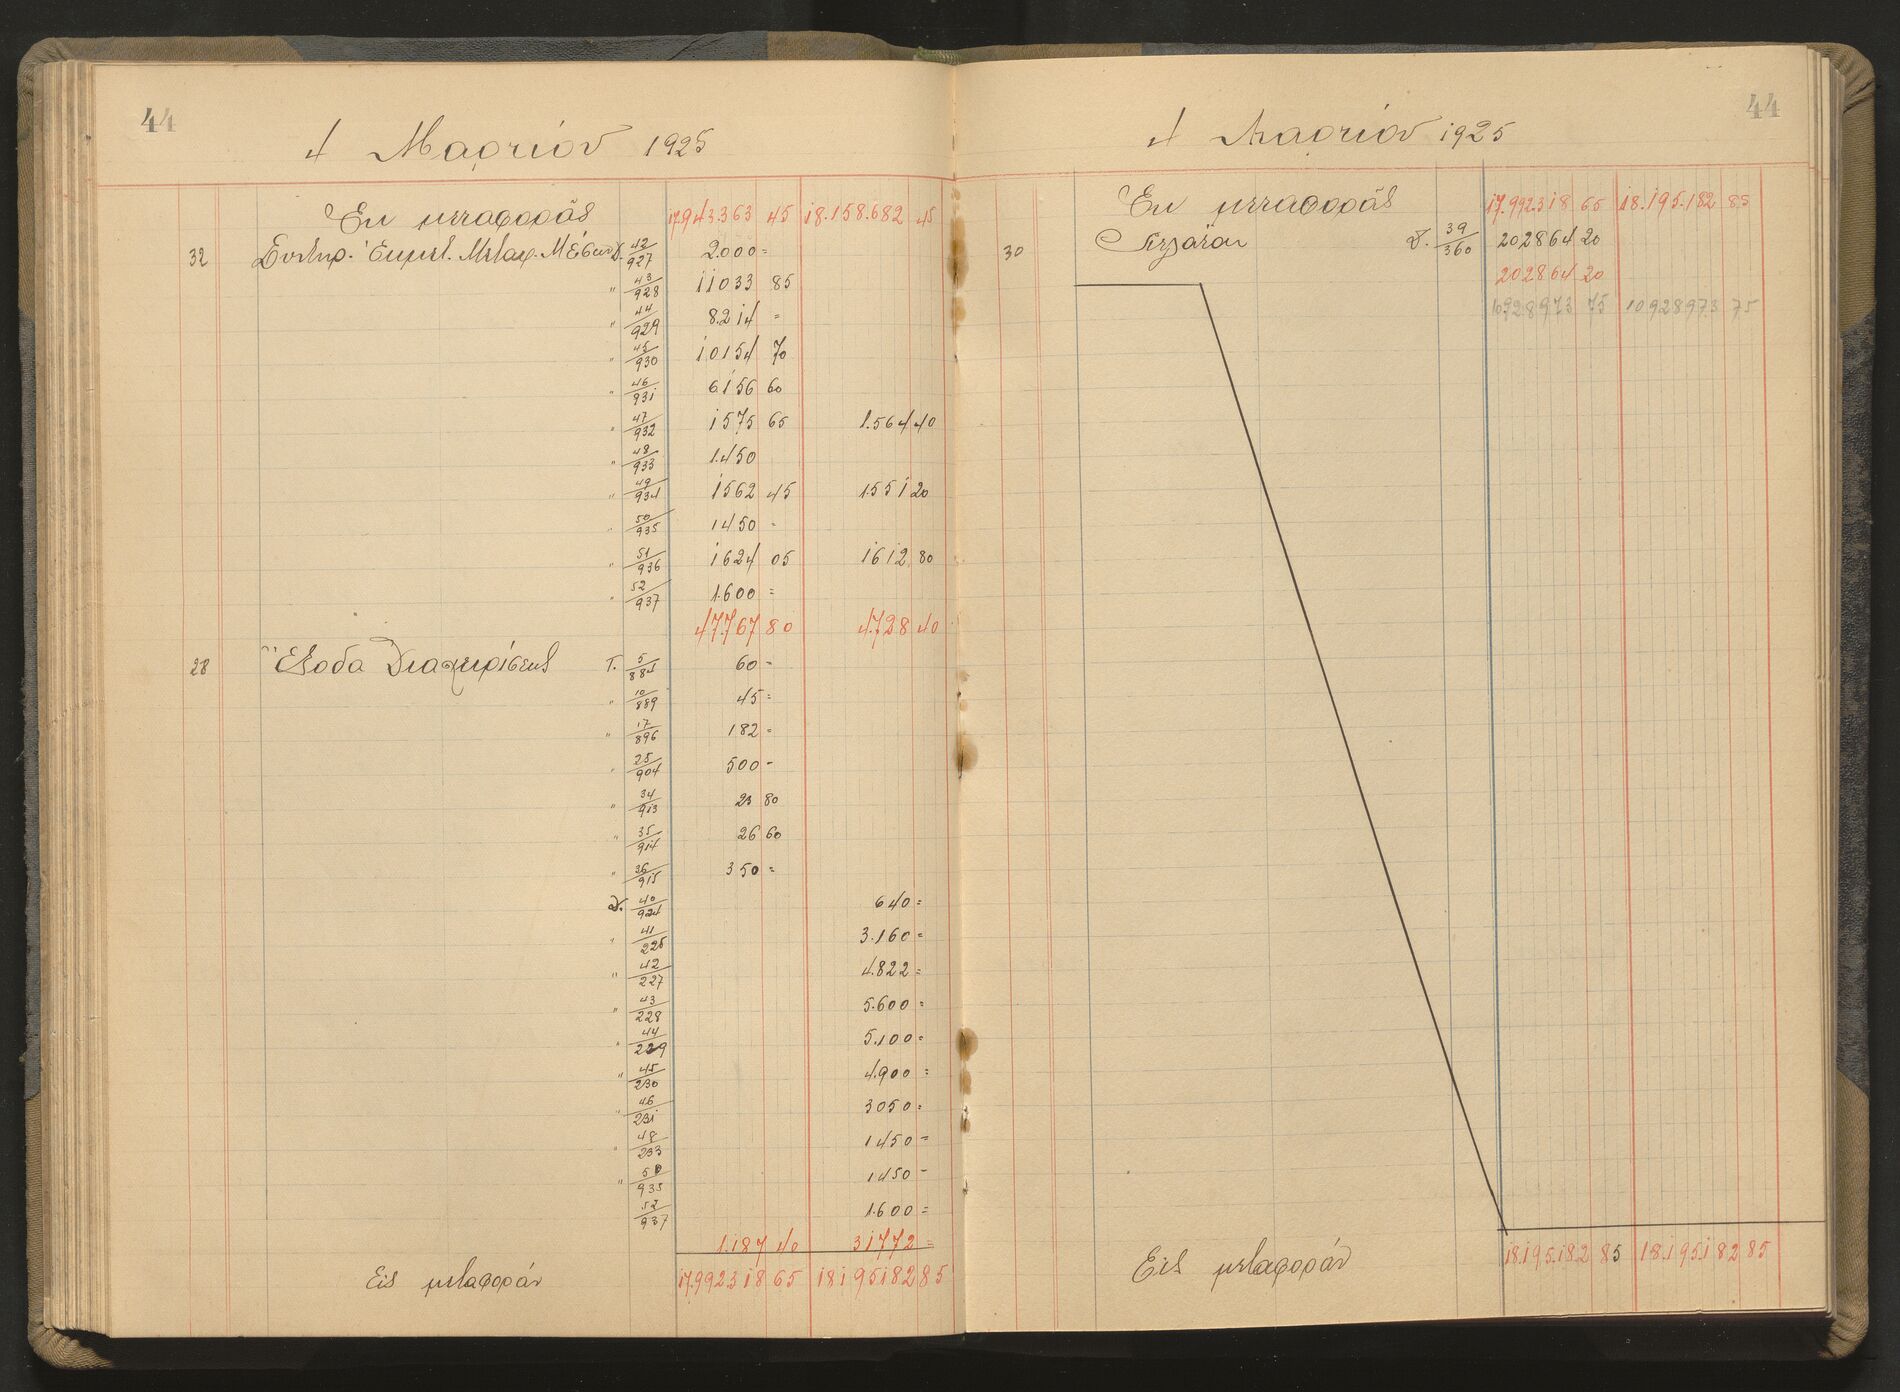 44
1 Μαρτίου 1925
Εκ μεταφοράς 17.943.363 45 18.158.682 45
32 Συντηρ. Εκμετ. Μεταφ. Μέσων Δ. 42/927 2.000 =
" 43/928 11033 85
" 44/929 8.214 =
" 45/930 10154 70
" 46/931 6156 60
" 47/932 1575 65 1.564 40
" 48/933 1.450
" 49/934 1562 45 1.551 20
" 50/935 1450 -
" 51/936 1624 05 1612 80
" 52/937 1.600 =
47.767 80 4.728 40
28 Έξοδα Διαχειρίσεως Τ. 5/884 60 -
" 10/889 45 =
" 17/896 182 =
" 25/904 500 -
" 34/913 23 80
" 35/914 26 60
" 36/915 350 =
Δ. 40/924 640 =
" 41/225 3.160 =
" 42/227 4.822 =
" 43/228 5.600 =
" 44/229 5.100 =
" 45/230 4.900 =
" 46/231 3050 =
" 48/233 1450 =
" 50/935 1450 -
52/937 1.600 =
1.187 40 31772 =
Εις μεταφοράν 17.992318 65 18195182 85
44
1 Μαρτίου 1925
Εκ μεταφοράς 17.992.318 65 18.195.182 85
30 Πελάται Δ. 39/360 202864 20
202864 20
10928973 75 10928973 75
Εις μεταφοράν 18.195.182 85 18.195182 85